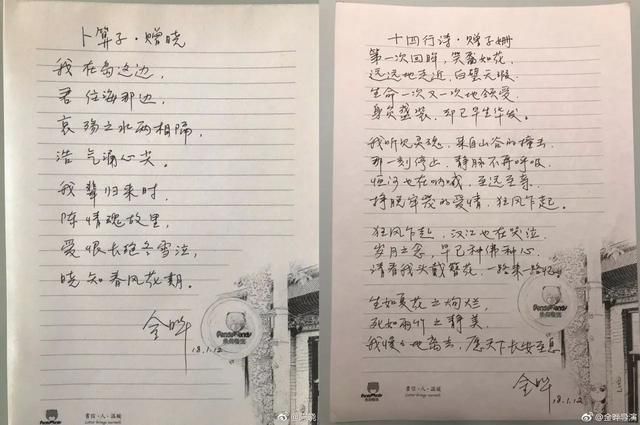 卜算子·赠晓
我在岛这边,
君住海那边,
哀殇之水两相隔,
浩气涌心尖。
我辈归来时,
陈情魂故里,
爱恨长绝冬雪泣,
晓知春风花期。
金晔
18.1.12
PandaPanda
书信·人·温暖
Letter brings warmth
十四行诗·赠子姗
第一次回眸,笑靥如花,
远远地走近,白璧无瑕。
生命一次又一次地领受,
身负盛装,却已早生华发。
我听见灵魂,来自山谷的撞击,
那一刻停止,静脉不再呼吸,
恒河也在呐喊,至远至亲,
挣脱牢笼的爱情,狂风乍起。
狂风乍起,汉江也在哭泣
岁月之念,早已种佛种心
请看我头戴簪花,一路来一路
生如夏花之绚烂,
死如雨竹之静美,
我慢慢地离去,愿天下长安至息
金晔
18.1.12
PandaPanda
书信·人·温暖
Letter brings warmth
@金晔导演